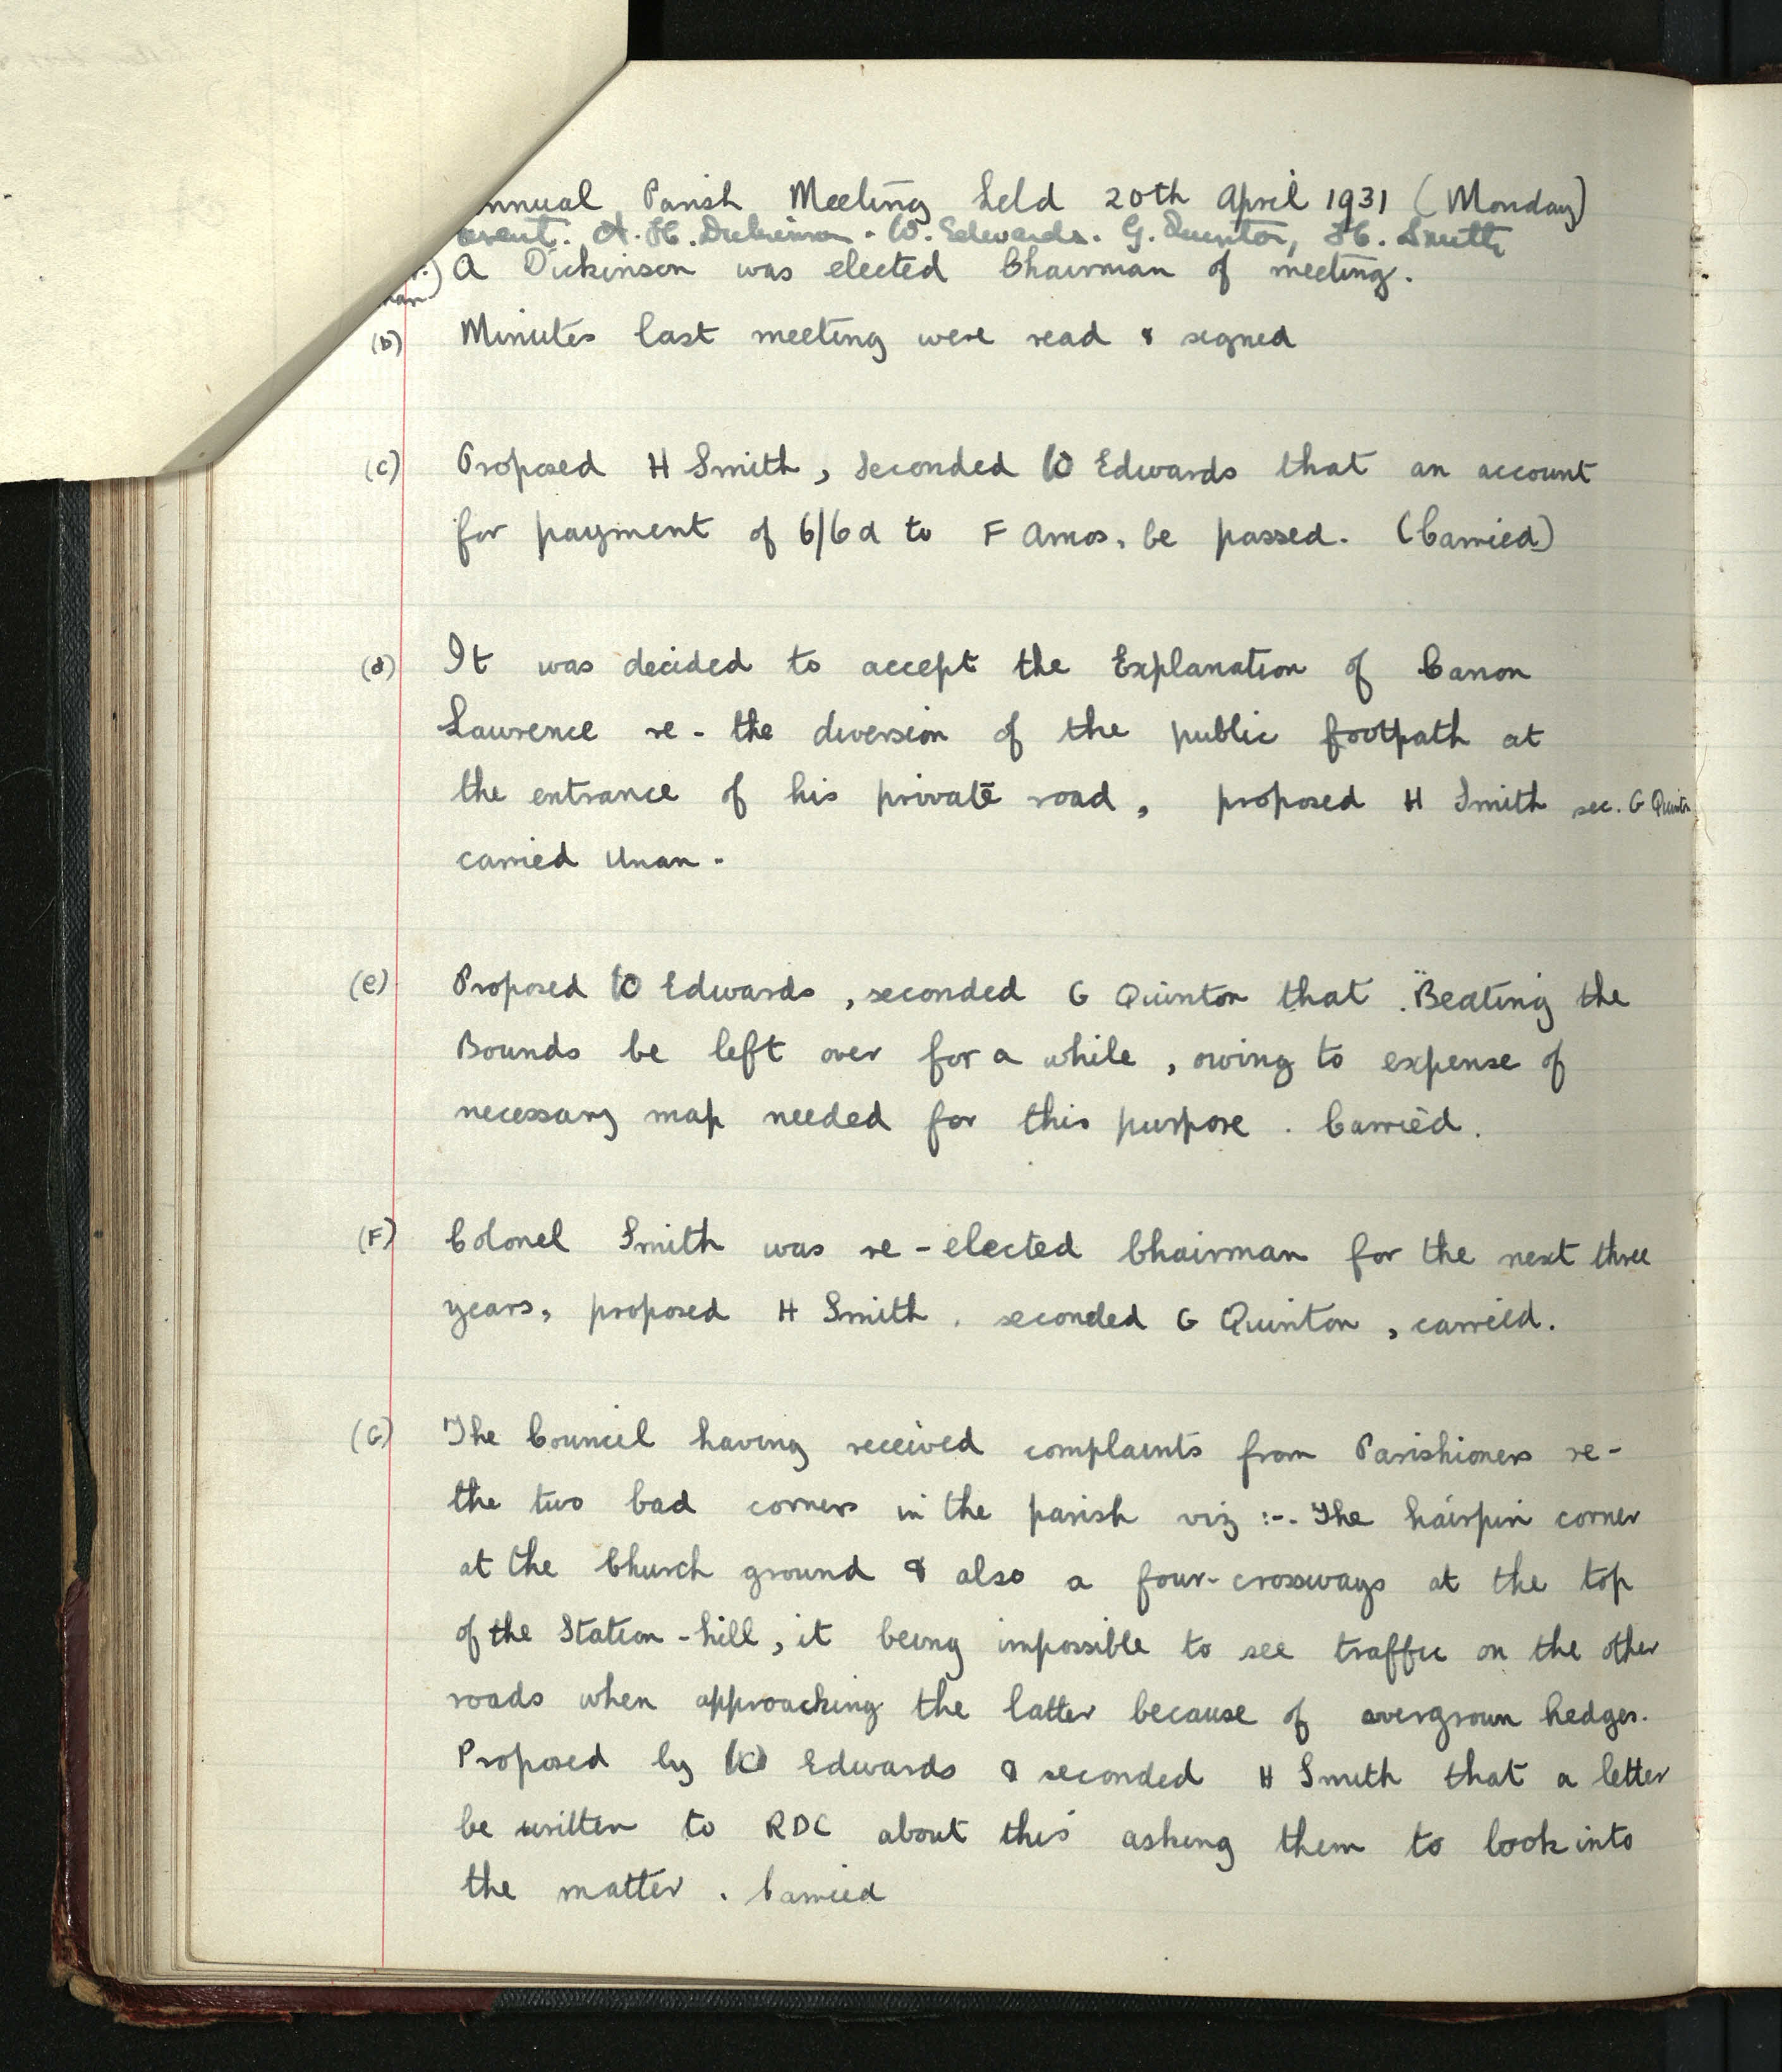 nnual Parish Meeting held 20th April 1931 (Monday)
esent. A. H. Dickinson. W. Edwards. G. Quinton, H. Smith
A Dickinson was elected Chairman of meeting.
(b) Minutes last meeting were read & signed
(c) Proposed H Smith, seconded W Edwards that an account
for payment of 6/6d to F Amos, be passed. (Carried)
(d) It was decided to accept the Explanation of Canon
Lawrence re - the diversion of the public footpath at
the entrance of his private road, proposed H Smith sec. G Quinton
carried Unan.
(e) Proposed W Edwards, seconded G Quinton that "Beating the
Bounds be left over for a while, owing to expense of
necessary map needed for this purpose. Carried.
(F) Colonel Smith was re-elected Chairman for the next three
years, proposed H Smith, seconded G Quinton, carried.
(G) The Council having received complaints from Parishioners re-
the two bad corners in the parish viz :-. The hairpin corner
at the Church ground & also a four-crossways at the top
of the Station-hill, it being impossible to see traffic on the other
roads when approaching the latter because of overgrown hedges.
Proposed by W Edwards & seconded H Smith that a letter
be written to RDC about this asking them to look into
the matter. Carried